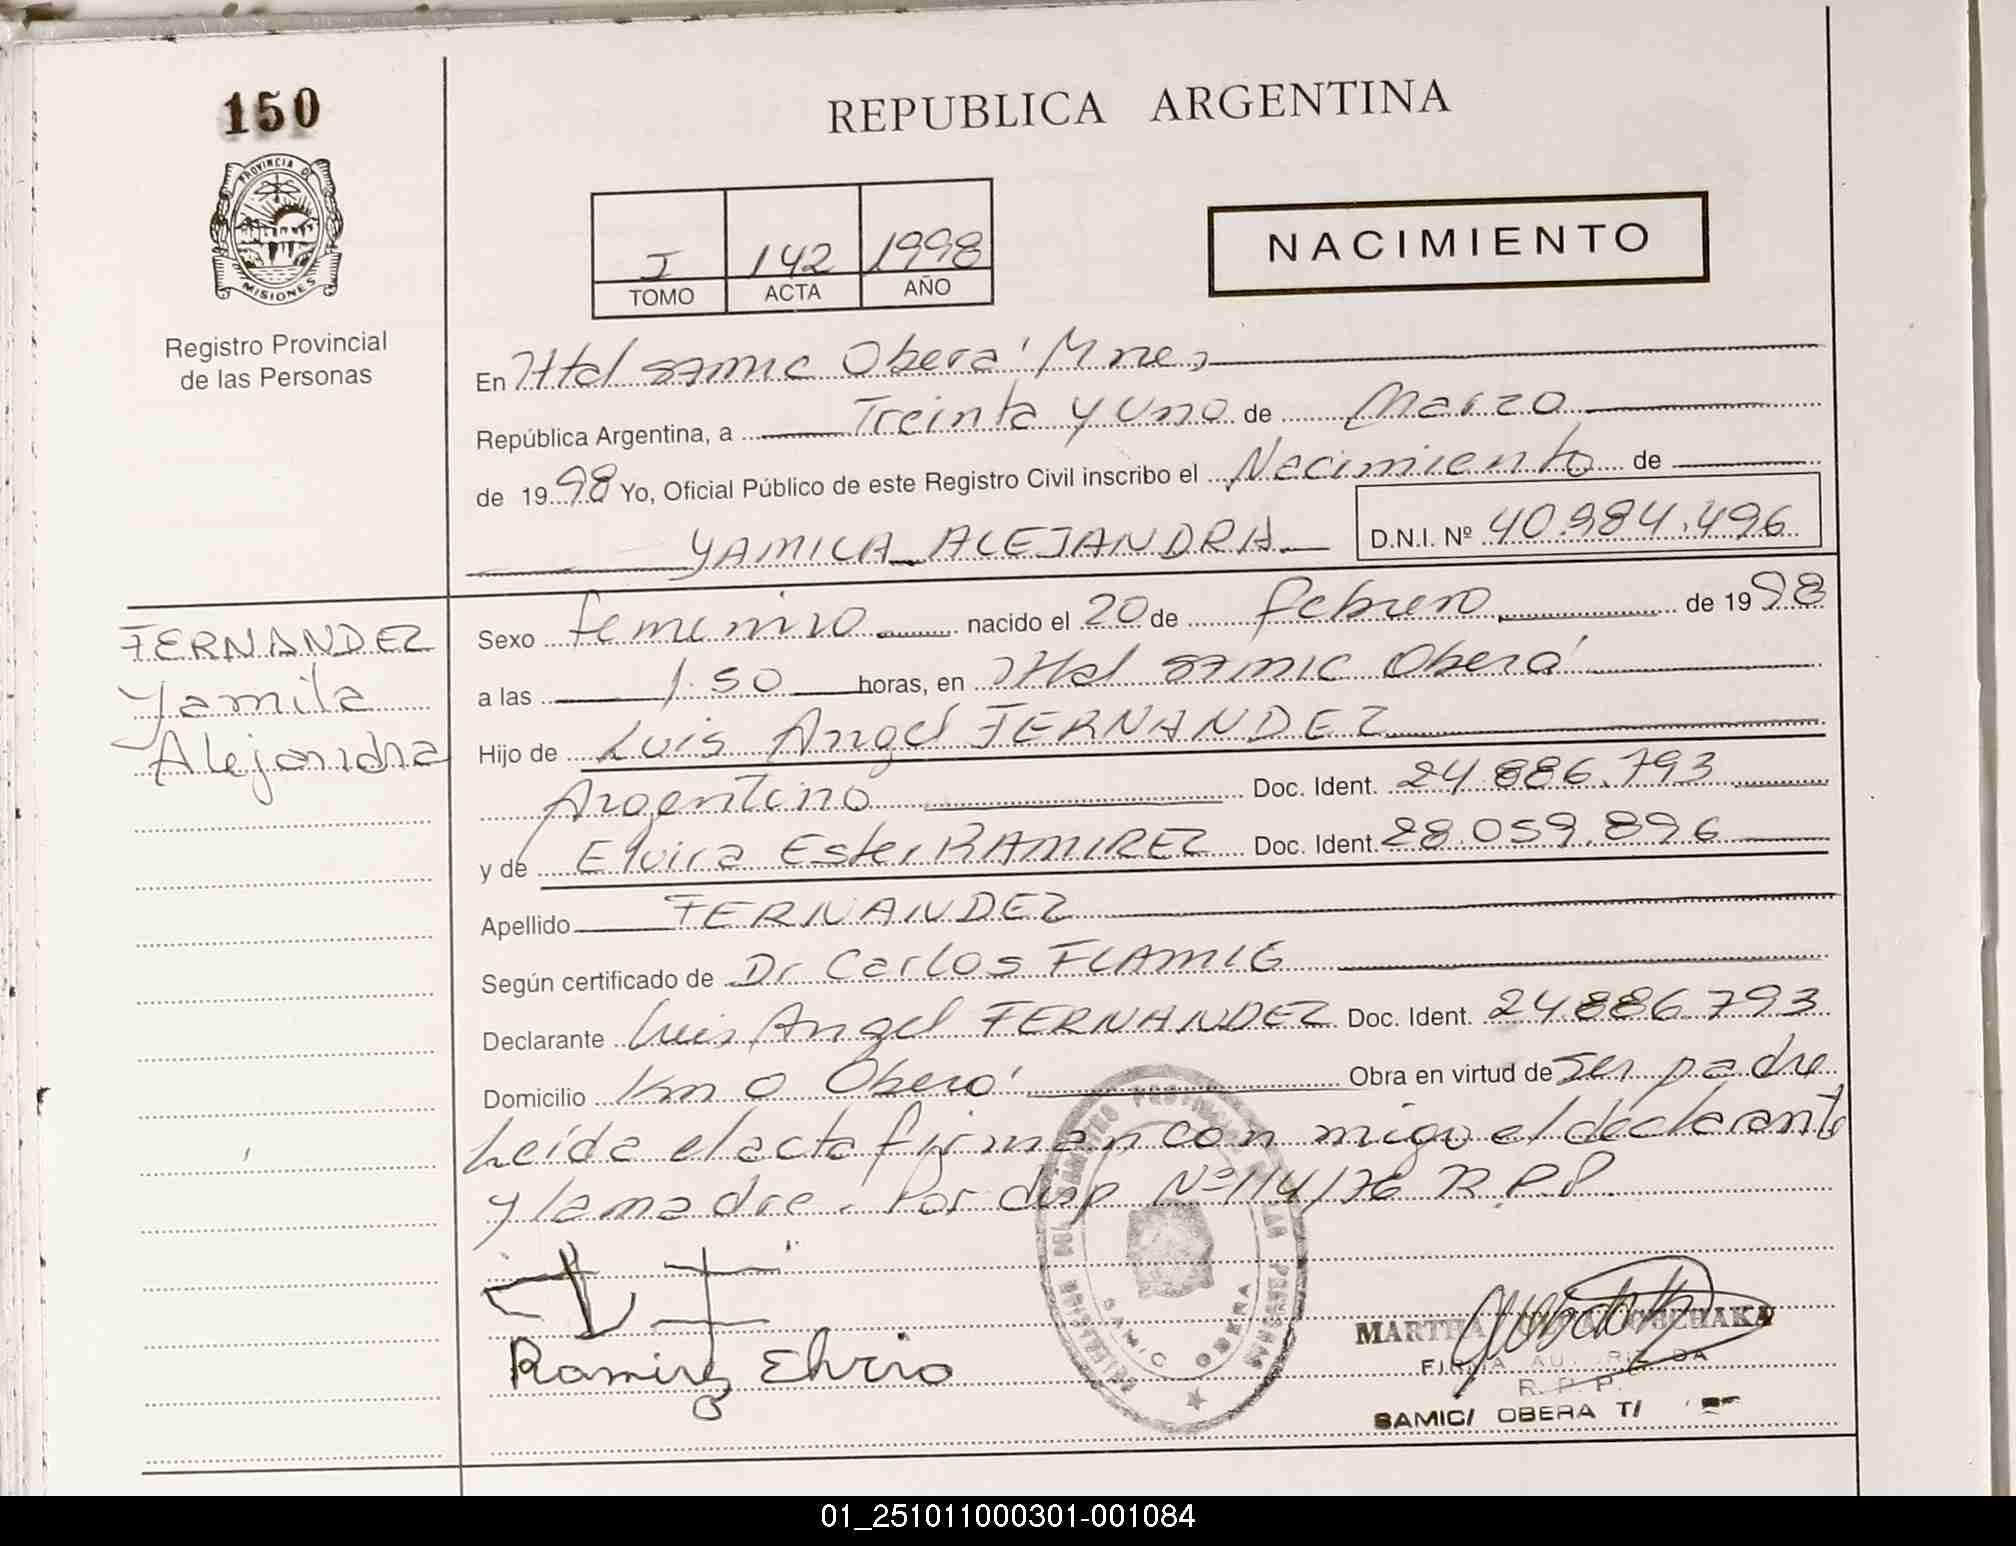 150
PROVINCIA DE
MISIONES
Registro Provincial
de las Personas
REPUBLICA ARGENTINA
I 142 1998
TOMO ACTA AÑO
NACIMIENTO
En Htal SAMIC Oberá Mnes,
República Argentina, a Treinta y Uno de Marzo
de 1998 Yo, Oficial Público de este Registro Civil inscribo el Nacimiento de
YAMILA ALEJANDRA D.N.I. Nº 40.984.496
FERNANDEZ
Yamila
Alejandra
Sexo femenino nacido el 20 de febrero de 1998
a las 1.50 horas, en Htal SAMIC Oberá
Hijo de Luis Angel FERNANDEZ
Argentino Doc. Ident. 24.886.793
y de Elvira Ester RAMIREZ Doc. Ident. 28.059.896
Apellido FERNANDEZ
Según certificado de Dr Carlos FLAMIG
Declarante Luis Angel FERNANDEZ Doc. Ident. 24886793
Domicilio Km 0 Oberá Obra en virtud de ser padre
Leída el acta firman con migo el declarante
y la madre. Por disp Nº 114/76 R.P.P.
Ramirez Elvira
REGISTRO PROVINCIAL DE LAS PERSONAS
SAMIC OBERA
MARTHA
FIRMA AUTORIZADA
R. P. P.
SAMIC/ OBERA T/
01_251011000301-001084